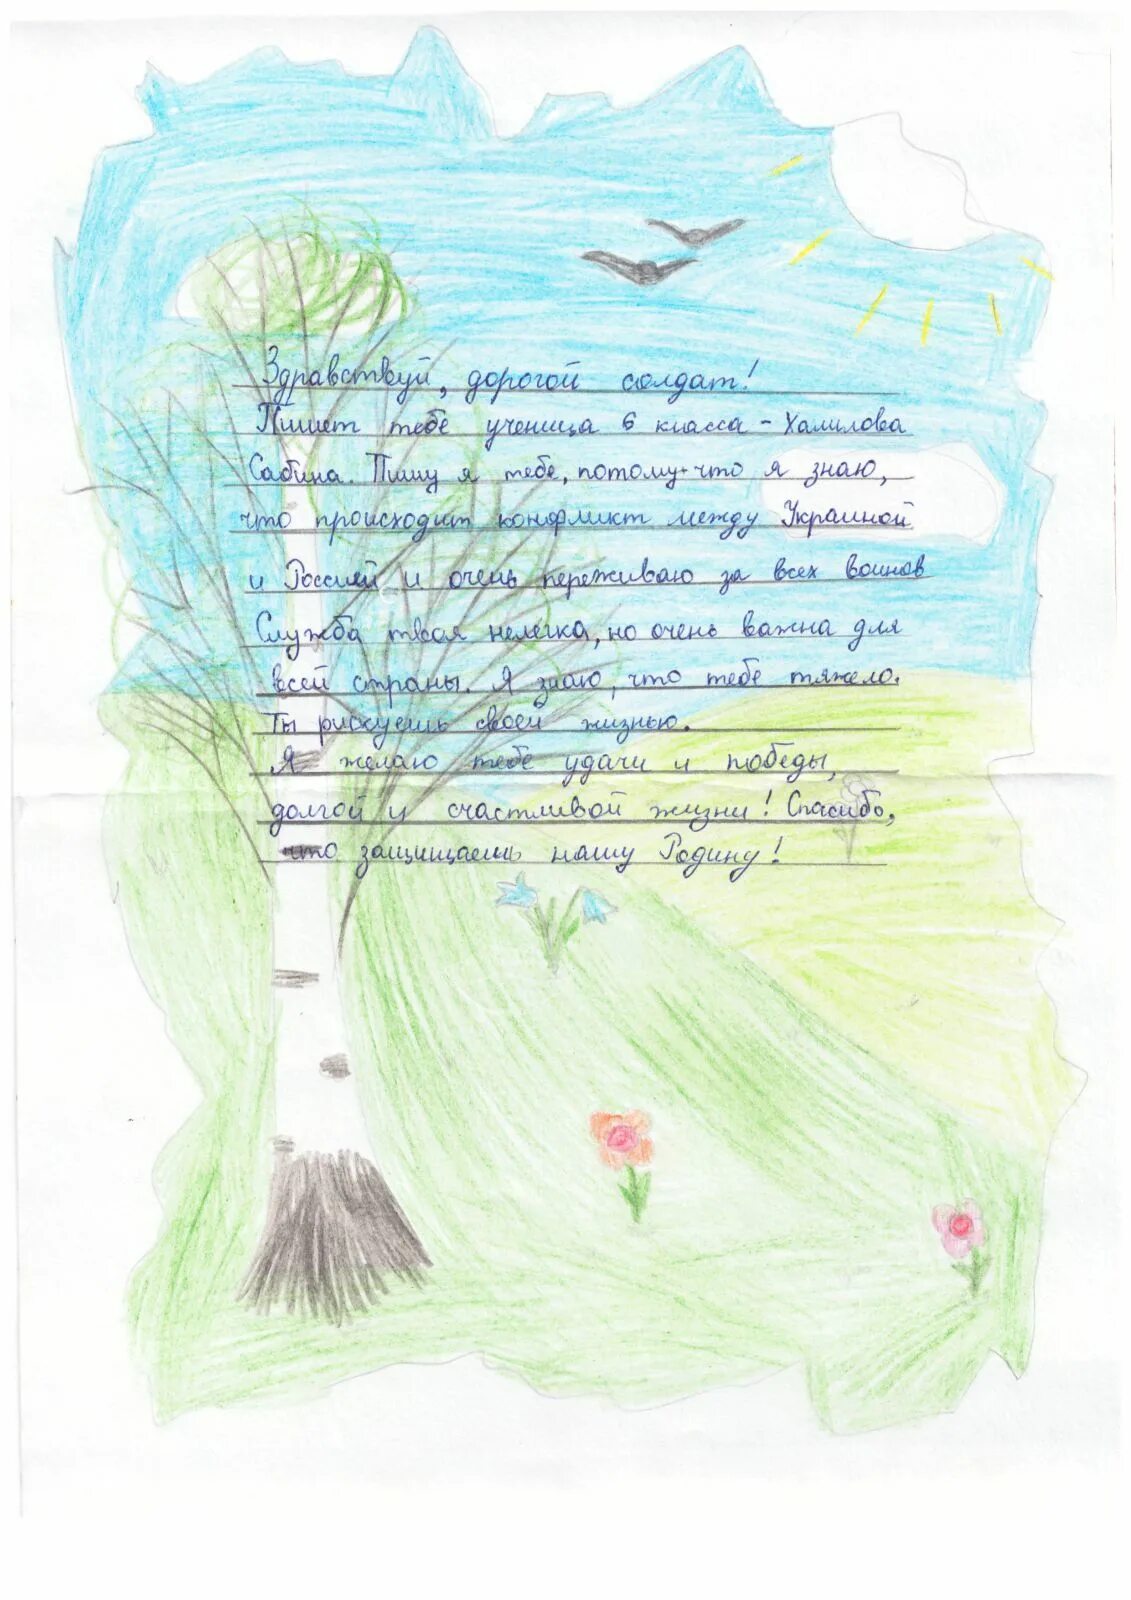 Здравствуй, дорогой солдат!
Пишет тебе ученица 6 класса - Халилова
Сабина. Пишу я тебе, потому-что я знаю,
что происходит конфликт между Украиной
и Россией и очень переживаю за всех воинов
Служба твоя нелегка, но очень важна для
всей страны. Я знаю, что тебе тяжело.
Ты рискуешь своей жизнью.
Я желаю тебе удачи и победы,
долгой и счастливой жизни! Спасибо,
что защищаешь нашу Родину!